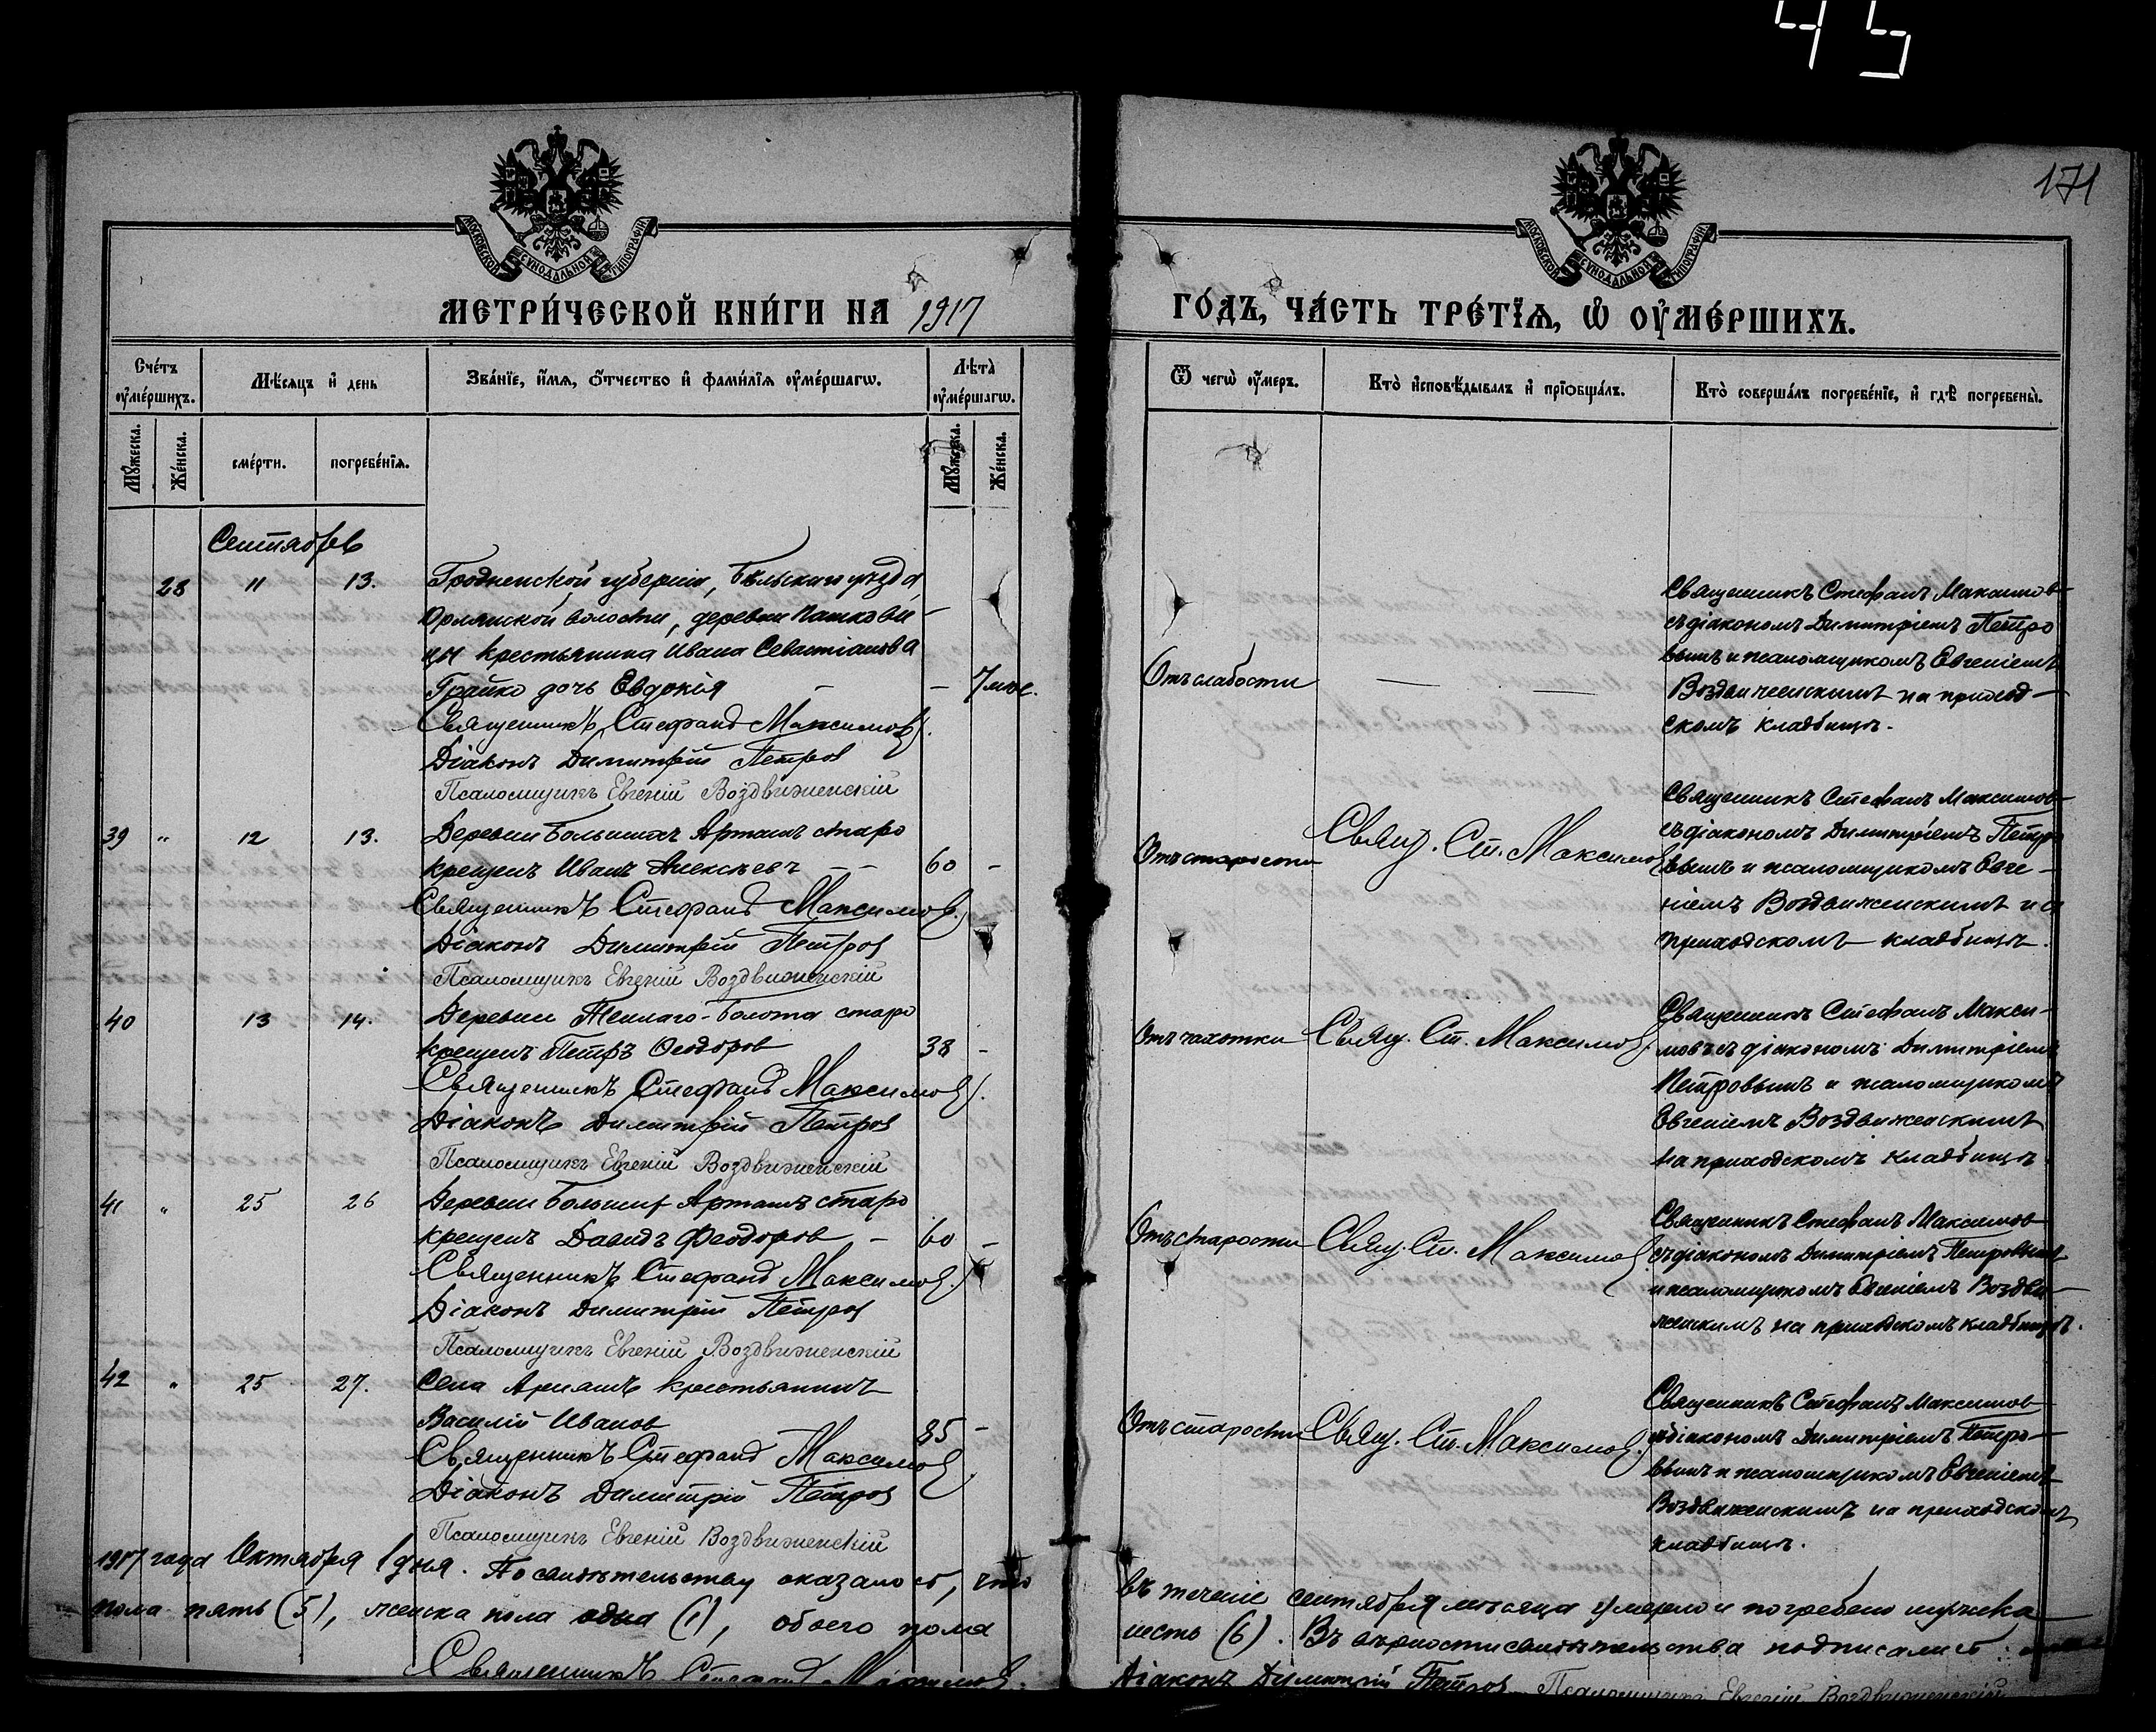 45
171
МОСКОВСКОЙ СѴНОДАЛЬНОЙ ТИПОГРАФІИ
МОСКОВСКОЙ СѴНОДАЛЬНОЙ ТИПОГРАФІИ
МЕТРИ́ЧЕСКОЙ КНИ́ГИ НА 1917
ГО́ДЪ, ЧА́СТЬ ТРЕ́ТЇѦ, Ѽ ОУ҆МЕ́РШИХЪ.
Сче́тъ оу҆ме́ршихъ.
Мѣ́сяцъ и҆ день
Зва́нїе, и҆́мѧ, ѻ҆́тчество и҆ фами́лїѧ оу҆ме́ршагѡ.
Лѣта̀ оу҆ме́ршагѡ.
Ѿ чегѡ̀ оу҆́меръ.
Кто̀ и҆сповѣ́дывалъ и҆ прїѡбща́лъ.
Кто̀ соверша́лъ погребе́нїе, и҆ гдѣ̀ погребены̀.
Мꙋ́жеска.
Же́нска.
сме́рти.
погребе́нїѧ.
Мꙋ́жеска.
Же́нска.
Сентябрь
28 11 13. Гродненской губерніи, Бѣльскаго уѣзда,
Орлянской волости, деревни Пашкови-
цы крестьянина Ивана Севастіанова
Грайко дочь Евдокія – – 7 мѣс.
Священникъ Стефанъ Максимовъ.
Діаконъ Димитрій Петров
Псаломщикъ Евгеній Воздвиженскій
Отъ слабости — —
Священникъ Стефанъ Максимов
съ діакономъ Димитріемъ Петро
вымъ и псаломщикомъ Евгеніемъ
Воздвиженскимъ на приход-
скомъ кладбищѣ.
39 " 12 13. Деревни Большихъ Арташъ старо
крещенъ Иванъ Алексѣевъ – – 60 –
Священникъ Стефанъ Максимов.
Діаконъ Димитрій Петров
Псаломщикъ Евгеній Воздвиженскій
Отъ старости Свящ. Ст. Максимов
Священникъ Стефанъ Максимов
съ діакономъ Димитріемъ Петро
вымъ и псаломщикомъ Евге-
ніемъ Воздвиженскимъ на
приходскомъ кладбищѣ.
40 13 14. Деревни Теплаго-Болота старо
крещенъ Петръ Ѳеодоров 38 –
Священникъ Стефанъ Максимов.
Діаконъ Димитрій Петров
Псаломщикъ Евгеній Воздвиженскій
Отъ чахотки Свящ. Ст. Максимов.
Священникъ Стефанъ Макси-
мовъ съ діакономъ Димитріемъ
Петровымъ и псаломщикомъ
Евгеніемъ Воздвиженскимъ
на приходскомъ кладбищѣ.
41 " 25 26 Деревни Большихъ Арташъ старо
крещенъ Давидъ Феодоров – 60 –
Священникъ Стефанъ Максимов.
Діаконъ Димитрій Петров
Псаломщикъ Евгеній Воздвиженскій
Отъ старости Свящ. Ст. Максимов
Священникъ Стефанъ Максимов
съ діакономъ Димитріемъ Петровымъ
и псаломщикомъ Евгеніемъ Воздви-
женскимъ на приходскомъ кладбищѣ.
42 " 25 27. Села Арнашъ крестьянинъ
Василій Иванов 85 –
Священникъ Стефанъ Максимов
Діаконъ Димитрій Петров
Псаломщикъ Евгеній Воздвиженскій
Отъ старости Свящ. Ст. Максимов.
Священникъ Стефанъ Максимов
съ діакономъ Димитріемъ Петро-
вымъ и псаломщикомъ Евгеніемъ
Воздвиженскимъ на приходскомъ
кладбищѣ.
1917 года Октября 1 дня. По свидѣтельству оказалось, что въ теченіе сентября мѣсяца умерло и погребено мужска
пола пять (5), женска пола одна (1), обоего пола шесть (6). Въ вѣрности свидѣтельства подписались:
Священникъ Стефанъ Максимов. Діаконъ Димитрій Петров Псаломщикъ Евгеній Воздвиженскій